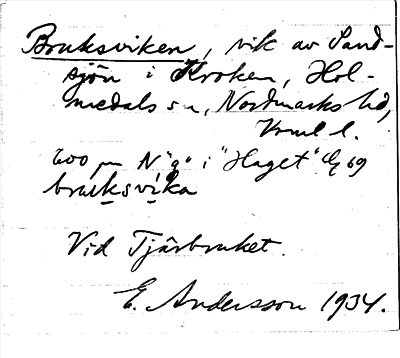 Bruksviken, vik av Sand-
sjön i Kroken, Hol-
medals sn, Nordmarks hd,
Vrml l.
600 m N "g" i "Haget" E 69
bruksvika
Vid Tjärbruket.
E. Andersson 1934.